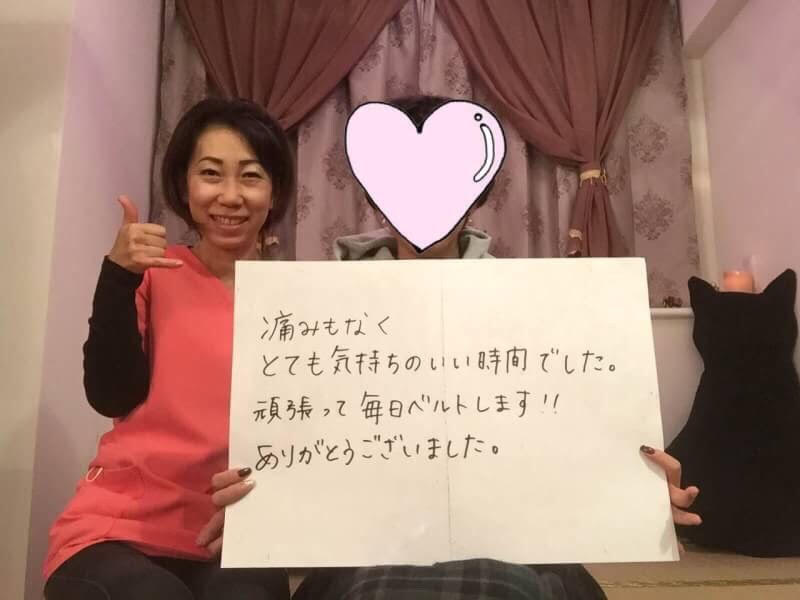 痛みもなく
とても気持ちのいい時間でした。
頑張って毎日ベルトします!!
ありがとうございました。